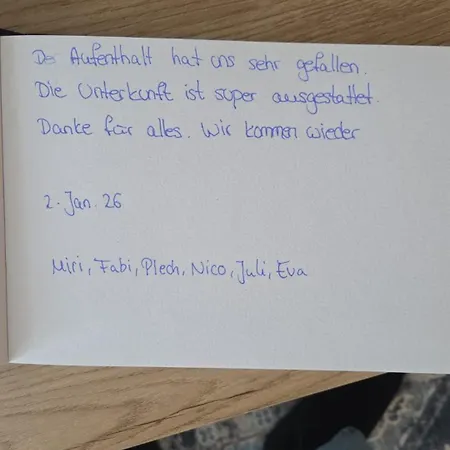 De Aufenthalt hat uns sehr gefallen.
Die Unterkunft ist super ausgestattet.
Danke für alles. Wir kommen wieder
2. Jan. 26
Miri, Fabi, Plech, Nico, Juli, Eva